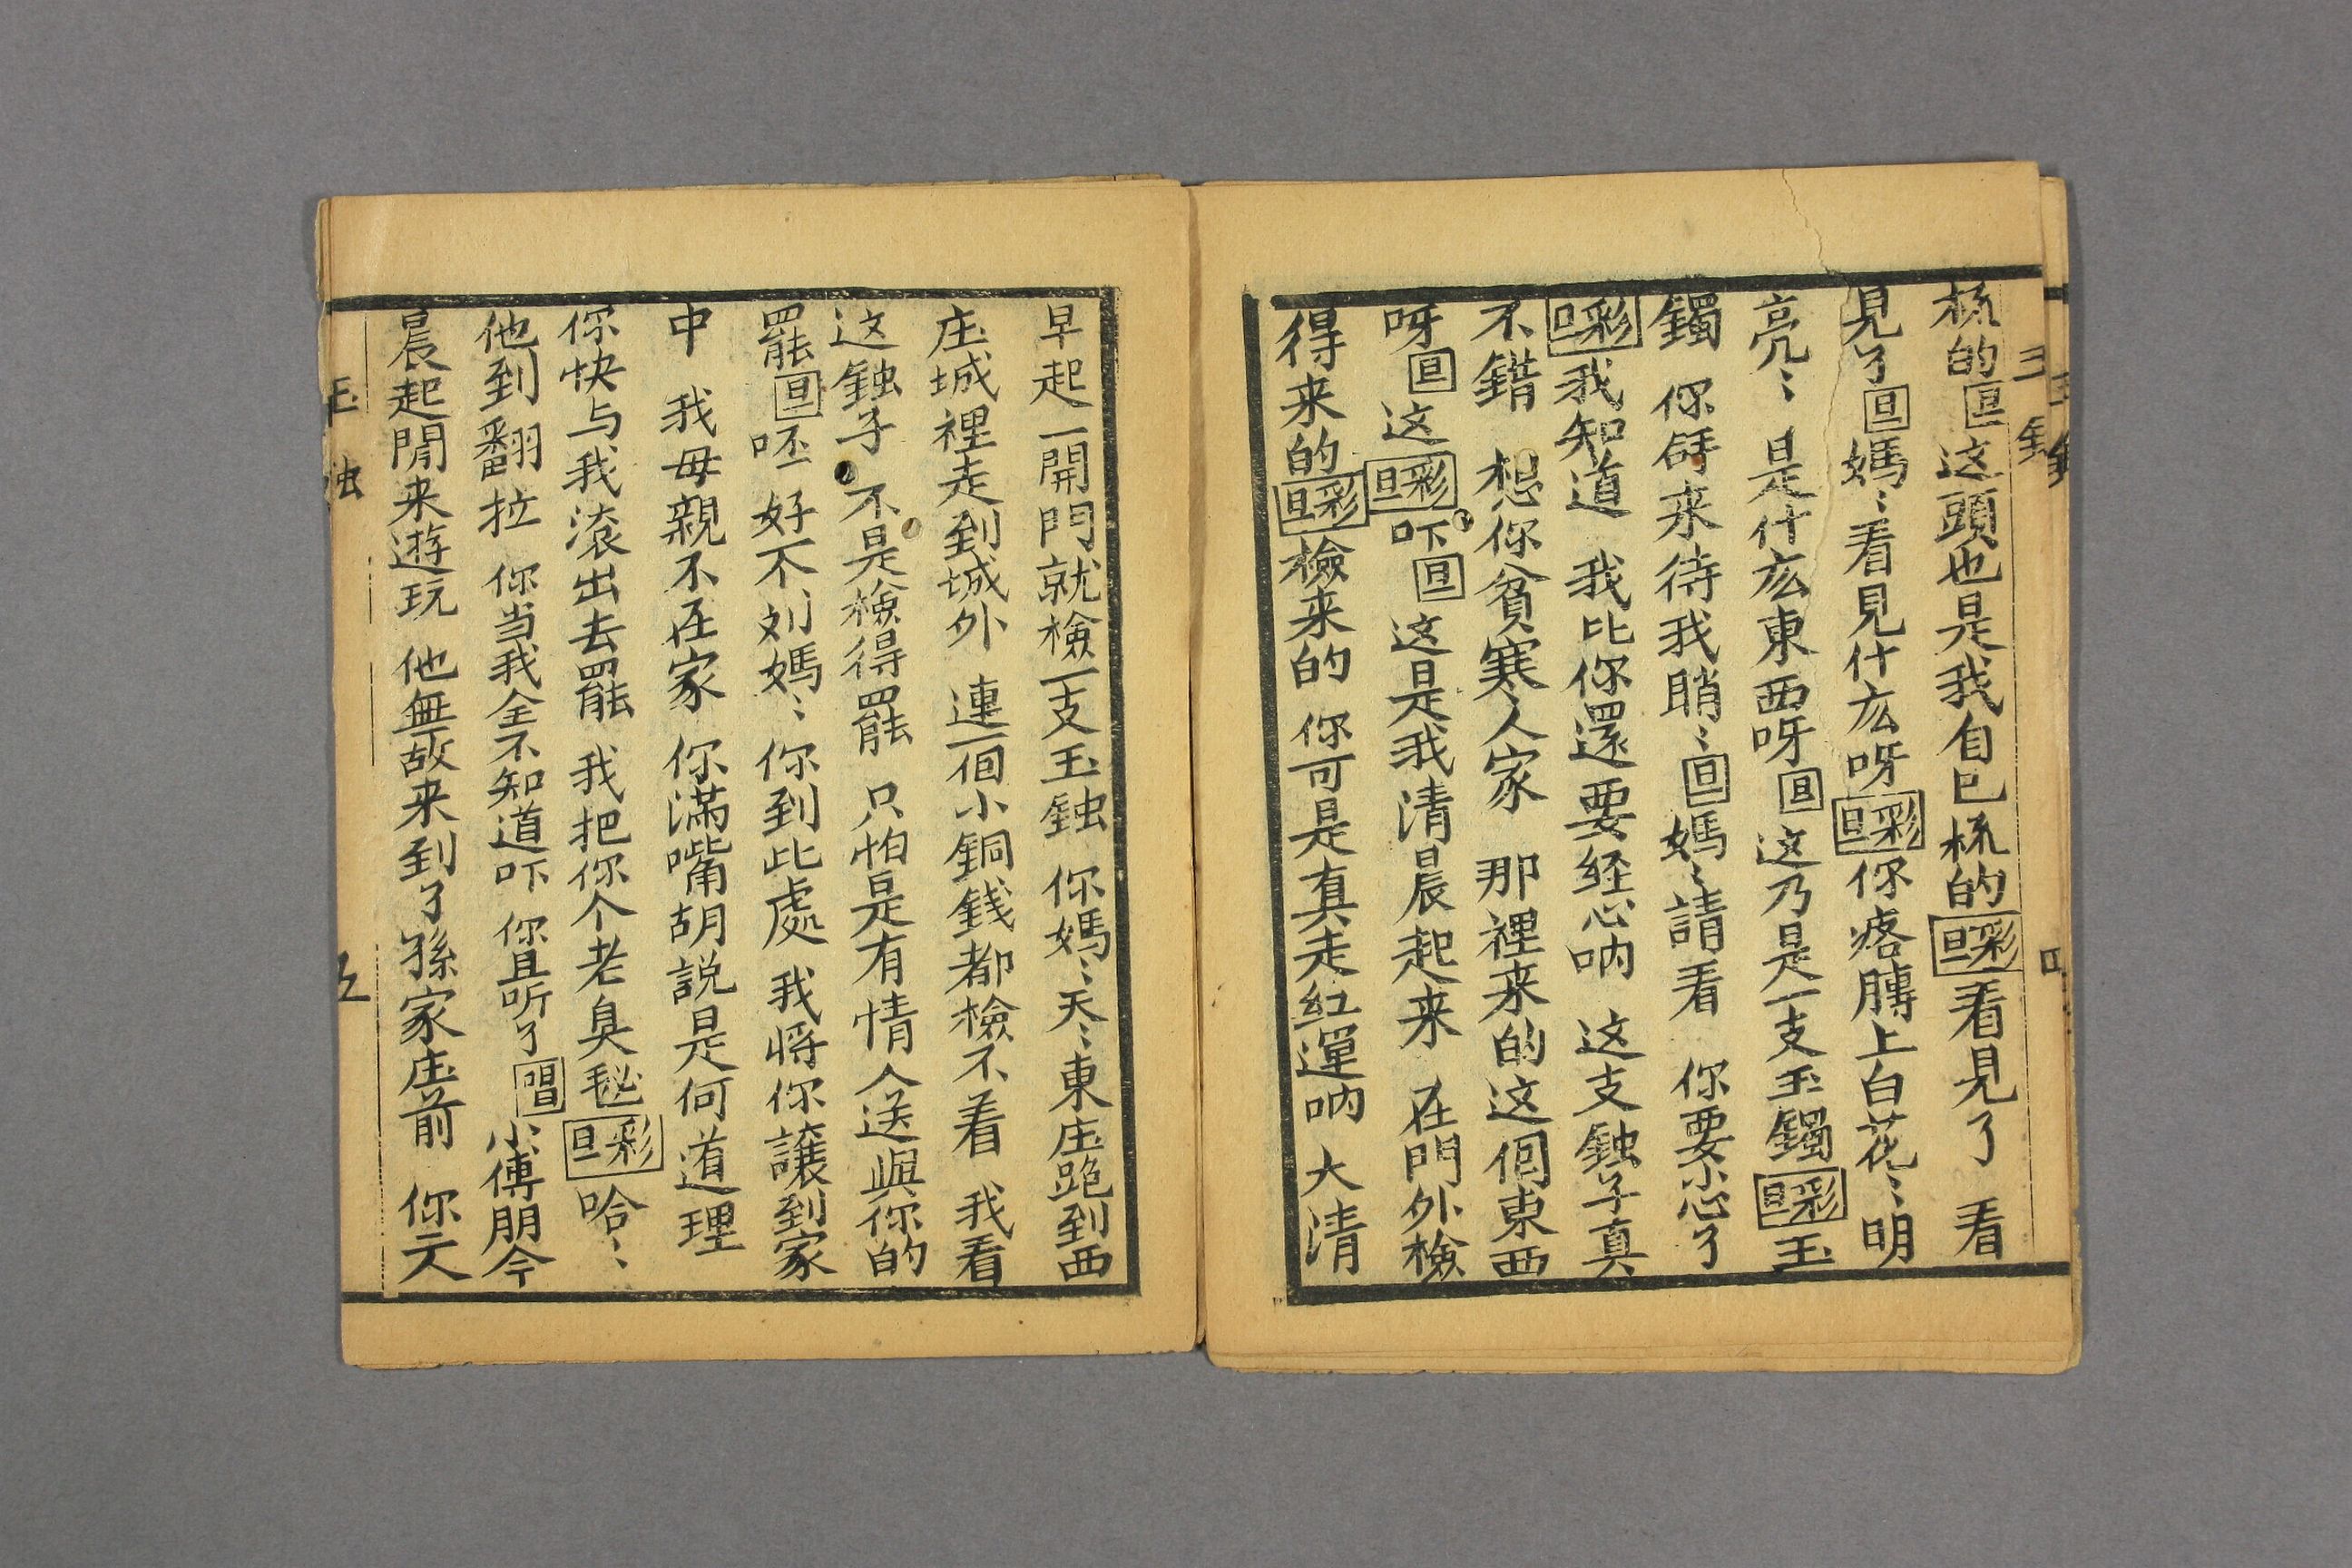 梳的旦这頭也是我自己梳的彩旦看見了 看
見了旦媽〻看見什庅呀彩旦你疙膊上白花〻明
亮〻 是什庅東西呀旦这乃是一支玉鐲彩旦玉
鐲 你辝来待我睄〻旦媽〻請看 你要小心了
彩旦我知道 我比你還要经心吶 这支䖝子真
不錯 想你貧寒人家 那裡来的这個東西
呀旦这彩旦吓旦这是我清晨起来 在門外檢
得来的彩旦檢来的 你可是真走紅運吶 大清
早起一開門就檢一支玉䖝 你媽〻天〻東庄跑到西
庄城裡走到城外 連一個小銅錢都檢不着 我看
这䖝子 不是檢得罷 只怕是有情人送與你的
罷旦呸 好不刘媽〻 你到此處 我將你讓到家
中 我母親不在家 你滿嘴胡説是何道理
你快与我滚出去罷 我把你个老臭毴彩旦哈〻
他到翻拉 你当我全不知道吓 你且听了唱小傅朋今
晨起閒来遊玩 他無故来到了孫家庄前 你元
玉
五